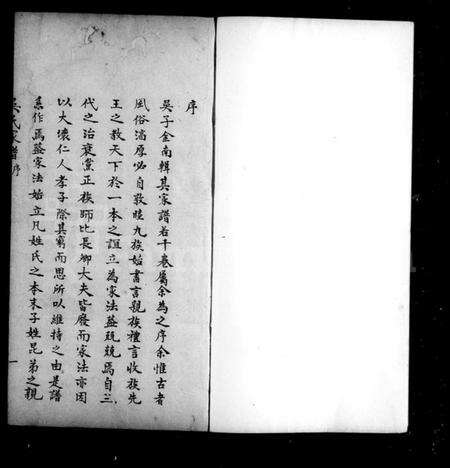 序
吳子金南輯其家譜若干卷屬余為之序余惟古者
風俗湻厚必自敦睦九族始書言親族禮言收族先
王之教天下於一本之誼立為家法益兢兢焉自三
代之治衰黨正族師比長鄉大夫皆廢而家法亦因
以大壞仁人孝子際其窮而思所以維持之由是譜
系作焉蓋家法始立凡姓氏之本末子姓昆弟之親
吳氏家譜 序 一